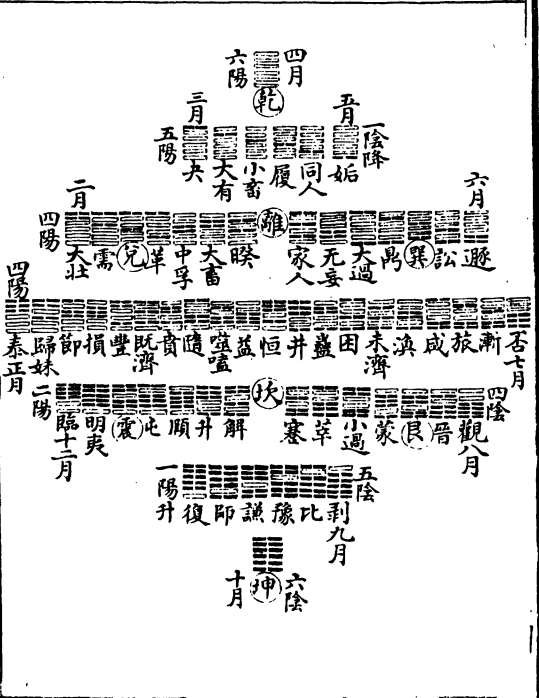 六陽
乾
四月
三月
五陽
夬
大有
小畜
履
同人
姤
五月
一陰降
二月
四陽
大壯
需
兌
革
中孚
大畜
睽
離
家人
无妄
大過
鼎
巽
訟
遯
六月
四陽
泰正月
歸妹
節
損
豐
既濟
賁
隨
噬嗑
益
恒
井
蠱
困
未濟
渙
咸
旅
漸
否七月
二陽
臨十二月
明夷
震
屯
頤
升
解
坎
蹇
萃
小過
蒙
艮
晉
觀八月
四陰
一陽升
復
師
謙
豫
比
剥九月
五陰
十月
坤
六陰